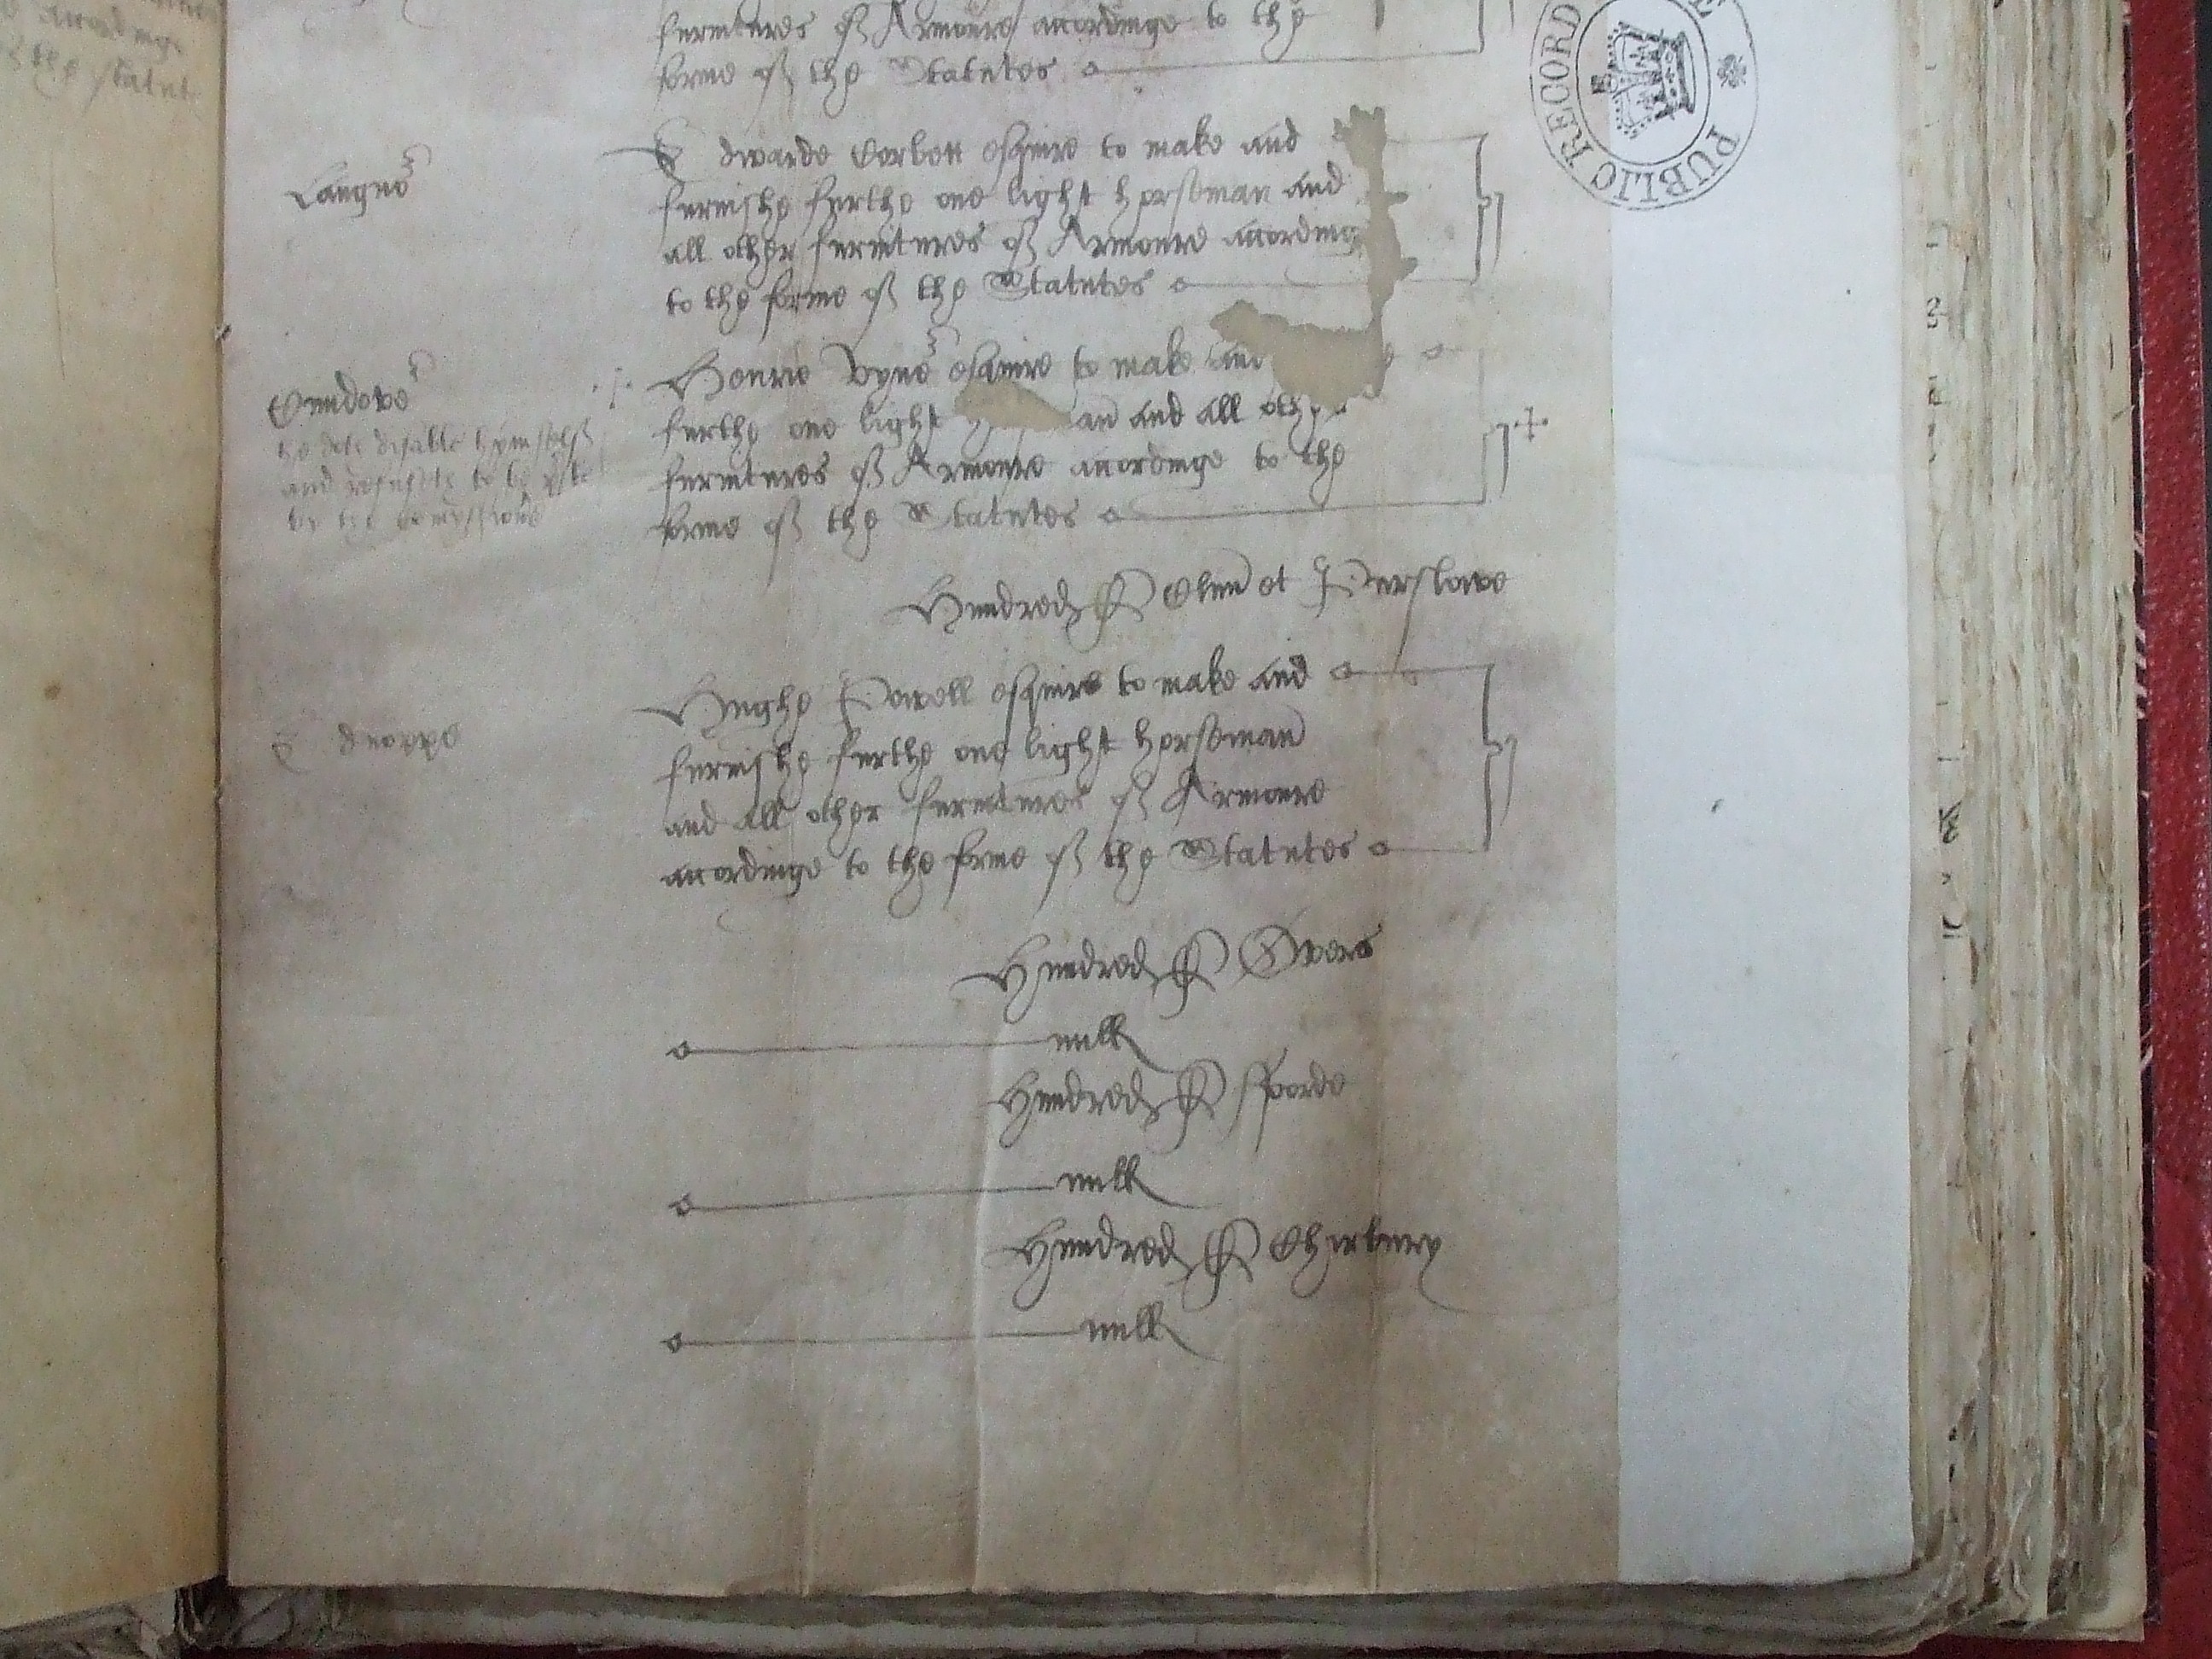 furnitures of Armoure accordinge to the
forme of the Statutes
Langno
Edwarde Corbett esquire to make and
furnishe furthe one light horseman and
all other furnitures of Armoure accordinge
to the forme of the Statutes
Cundove
he doth disable hym self
and refuseth to be
by the
Henrie Vyne esquire to make and
furthe one light an and all other
furnitures of Armoure accordinge to the
forme of the Statutes
Hundred de Clun et Purslowe
Ednoppe
Hughe Powell esquire to make and
furnishe furthe one light horseman
and all other furnitures of Armoure
accordinge to the forme of the Statutes
Hundred de Overs
null
Hundred de fforde
null
Hundred de Chirbury
null
PUBLIC RECORD